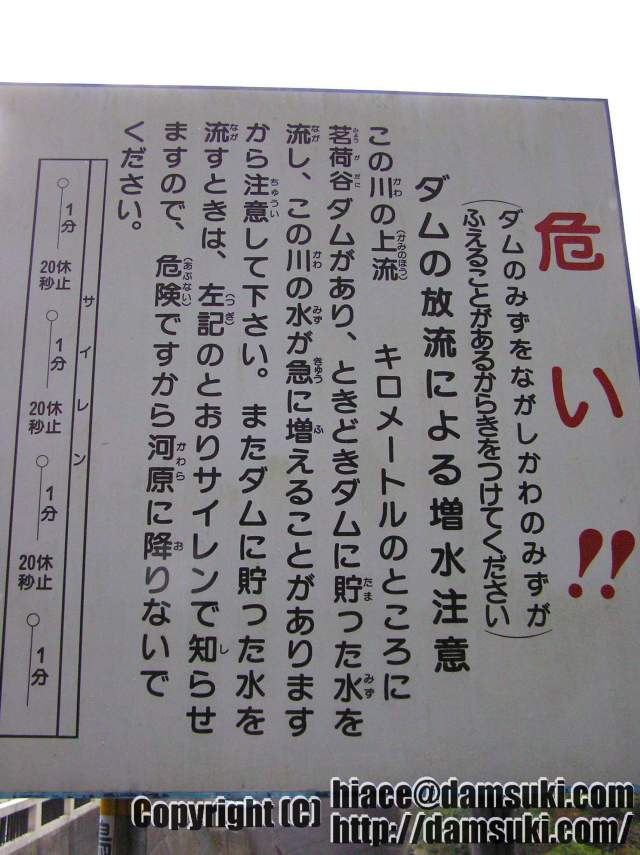 危い!!
(ダムのみずをながしかわのみずが
ふえることがあるからきをつけてください)
ダムの放流による増水注意
この川の上流(かみのほう)　　キロメートルのところに
茗荷谷ダムがあり、ときどきダムに貯った水を
流し、この川の水が急に増えることがあります
から注意して下さい。またダムに貯った水を
流すときは、左記(つぎ)のとおりサイレンで知らせ
ますので、危険(あぶない)ですから河原に降りないで
ください。
サイレン
1分
20秒休止
1分
20秒休止
1分
20秒休止
1分
Copyright (C) hiace@damsuki.com
http://damsuki.com/